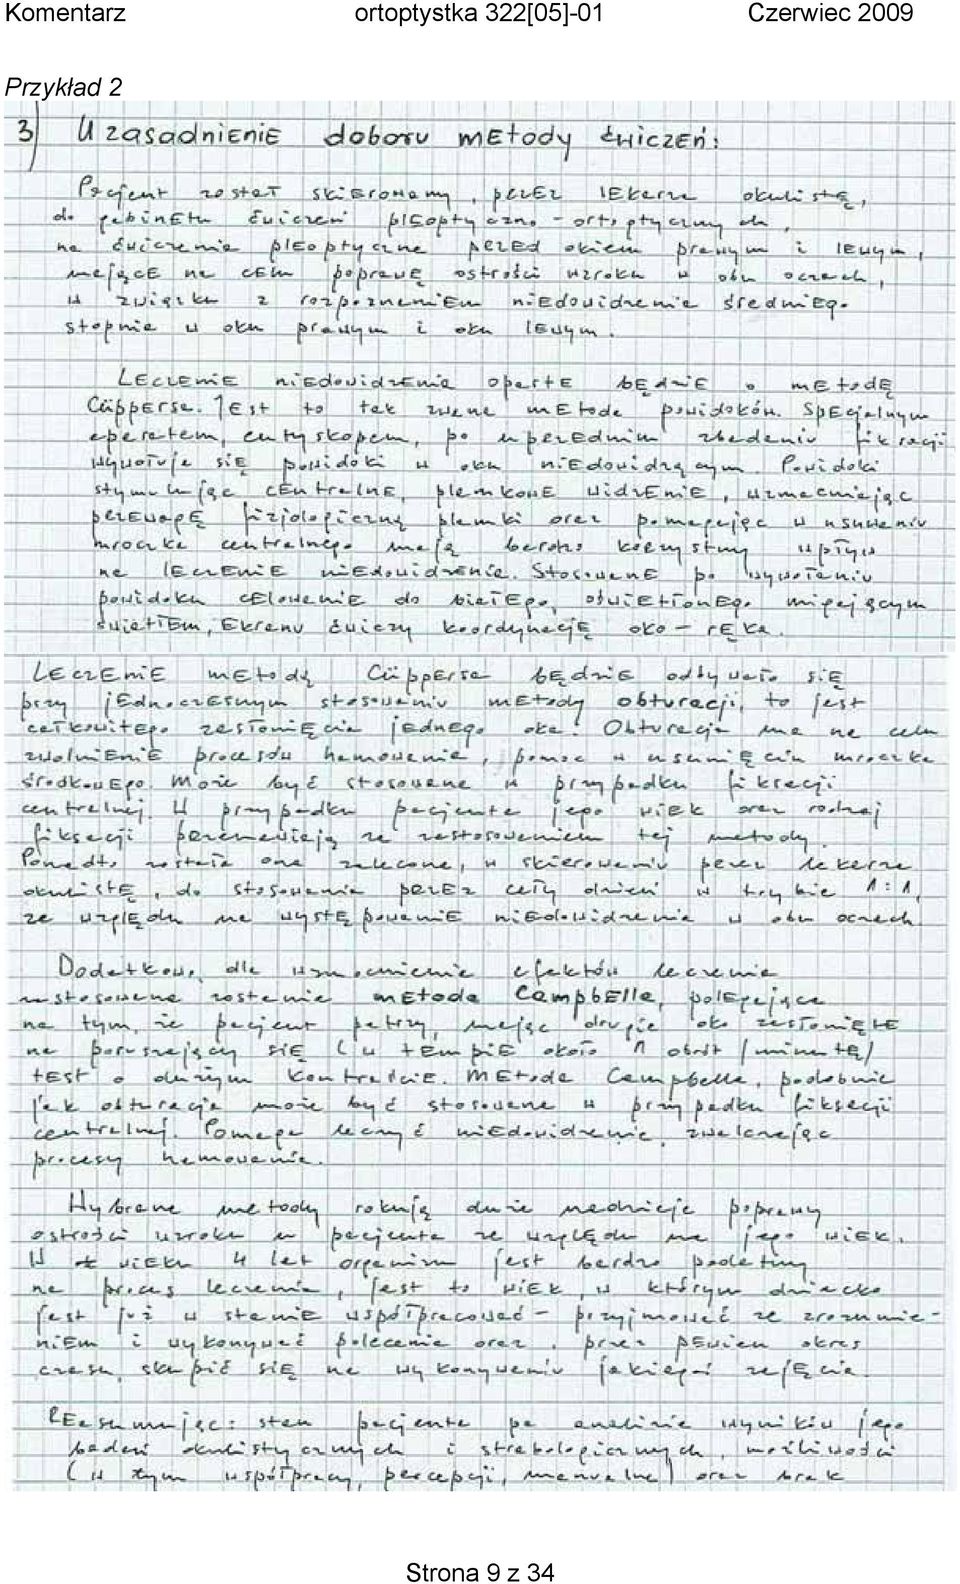 Komentarz ortoptystka 322[05]-01 Czerwiec 2009
Przykład 2
3) Uzasadnienie doboru metody ćwiczeń:
Pacjent został skierowany, przez lekarza okulistę,
do gabinetu ćwiczeń pleoptyczno - ortoptycznych,
na ćwiczenia pleoptyczne przed okiem prawym i lewym,
mające na celu poprawę ostrości wzroku w obu oczach,
w związku z rozpoznaniem niedowidzenia średniego
stopnia w oku prawym i oku lewym.
Leczenie niedowidzenia oparte będzie o metodę
Cüppersa. Jest to tak zwana metoda powidoków. Specjalnym
aparatem, eutyskopem, po uprzednim zbadaniu fiksacji
wywołuje się powidoki w oku niedowidzącym. Powidoki
stymulując centralne, plamkowe widzenie, wzmacniając
przewagę fizjologiczną plamki oraz pomagając w usuwaniu
mroczka centralnego mają bardzo korzystny wpływ
na leczenie niedowidzenia. Stosowane po wywołaniu
powidoku celowanie do białego, oświetlonego migającym
światłem, ekranu ćwiczy koordynację oko - ręka.
Leczenie metodą Cüppersa będzie odbywało się
przy jednoczesnym stosowaniu metody obturacji, to jest
całkowitego zasłonięcia jednego oka. Obturacja ma na celu
zwolnienie procesów hamowania, pomoc w usunięciu mroczka
środkowego. Może być stosowana w przypadku fiksacji
centralnej. W przypadku pacjenta jego wiek oraz rodzaj
fiksacji przemawiają za zastosowaniem tej metody.
Ponadto została ona zalecona, w skierowaniu przez lekarza
okulistę, do stosowania przez cały dzień w trybie 1:1,
ze względu na występowanie niedowidzenia w obu oczach.
Dodatkowo, dla wzmocnienia efektów leczenia
zastosowana zostanie metoda Campbella, polegająca
na tym, że pacjent patrzy, mając drugie oko zasłonięte
na poruszający się (w tempie około 1 obrót/minutę)
test o dużym kontraście. Metoda Campbella, podobnie
jak obturacja może być stosowana w przypadku fiksacji
centralnej. Pomaga leczyć niedowidzenie, zwalczając
procesy hamowania.
Wybrane metody rokują duże nadzieje poprawy
ostrości wzroku u pacjenta ze względu na jego wiek.
W wieku 4 lat organizm jest bardzo podatny
na proces leczenia, jest to wiek, w którym dziecko
jest już w stanie współpracować - przyjmować ze zrozumie-
niem i wykonywać polecenia oraz, przez pewien okres
czasu, skupić się na wykonywaniu jakiegoś zajęcia.
Reasumując: stan pacjenta po analizie wyników jego
badań okulistycznych i strabologicznych, możliwości
(w tym współpracy, percepcji, manualne) oraz brak
Strona 9 z 34